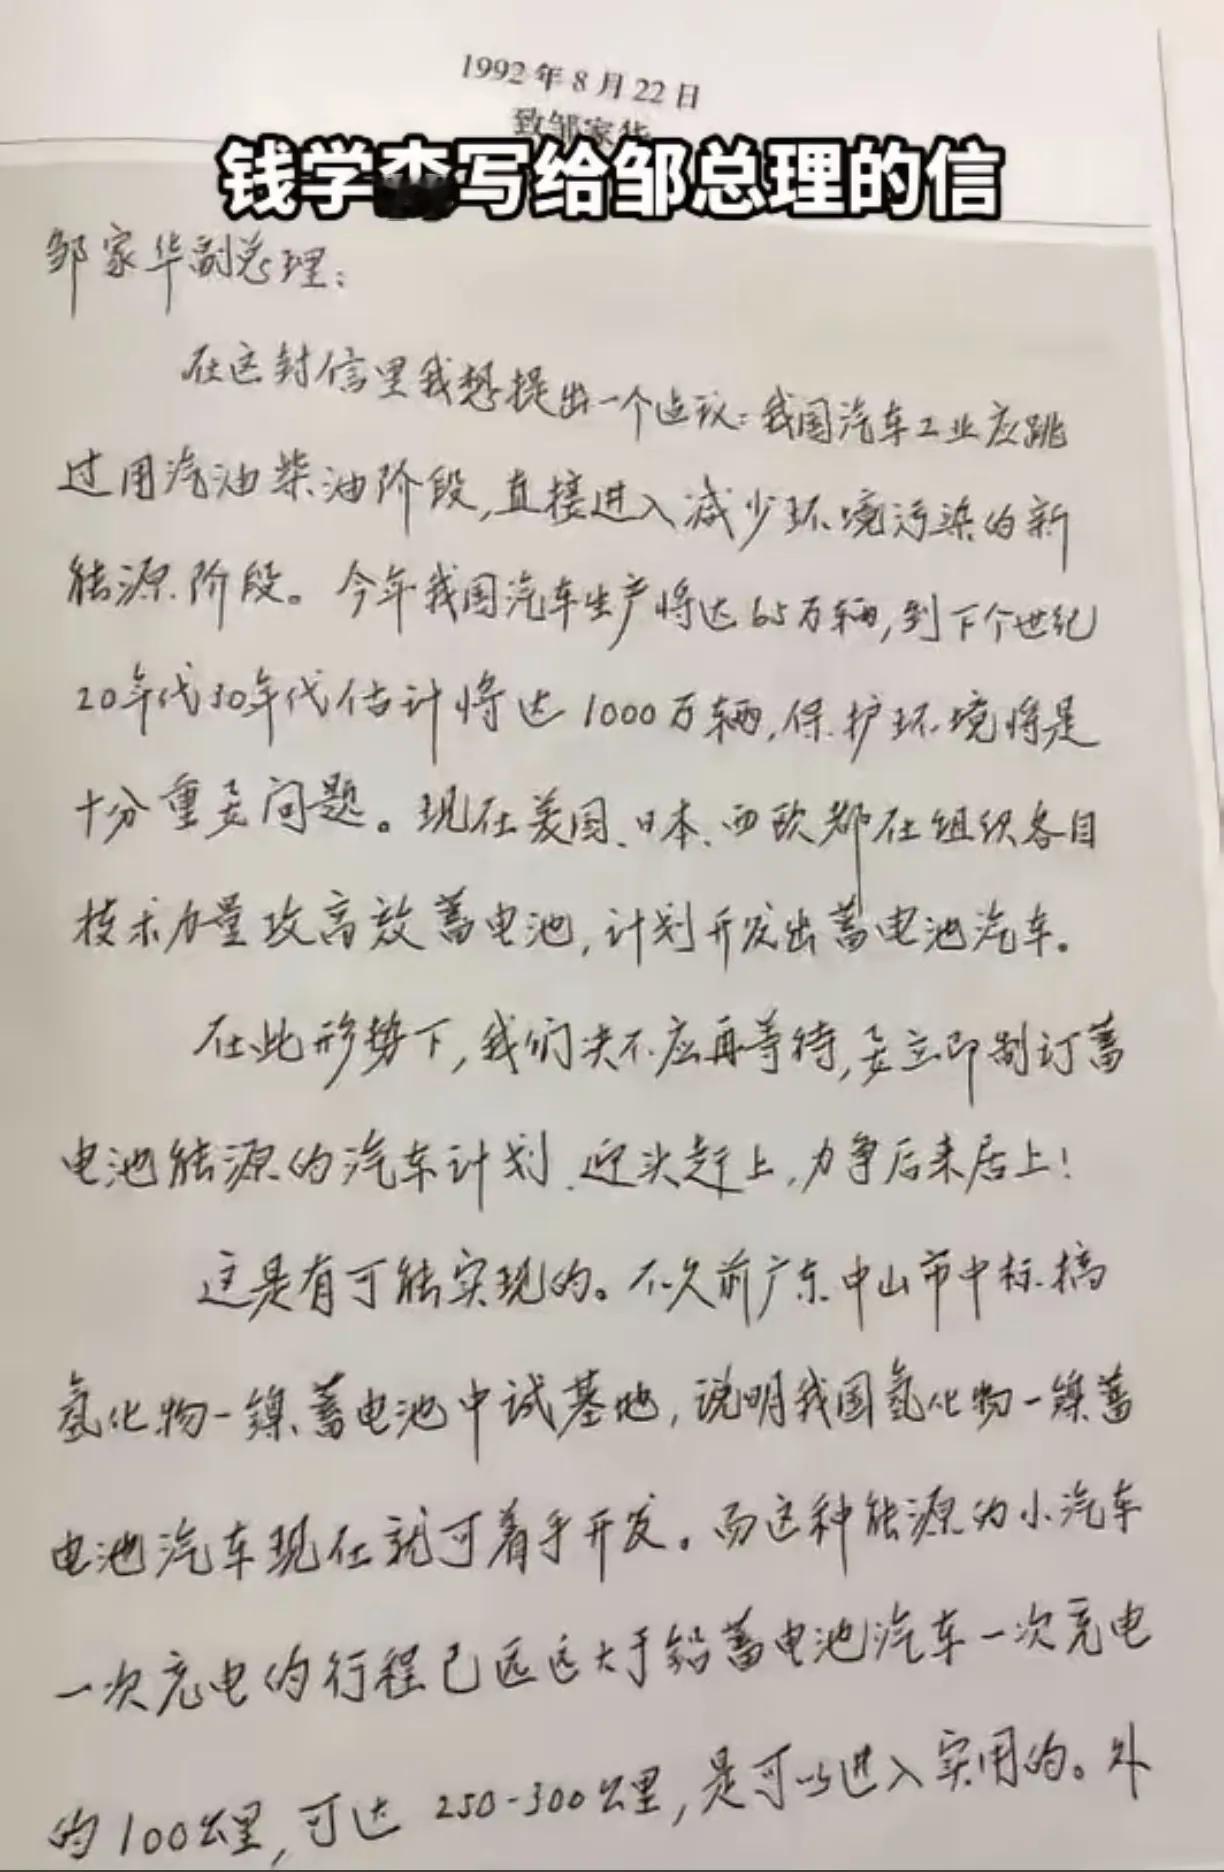 1992年8月22日
致邹家华
钱学森写给邹总理的信
邹家华副总理：
在这封信里我想提出一个建议：我国汽车工业应跳
过用汽油柴油阶段，直接进入减少环境污染的新
能源阶段。今年我国汽车生产将达65万辆，到下个世纪
20年代30年代估计将达1000万辆，保护环境将是
十分重要问题。现在美国、日本、西欧都在组织各自
技术力量攻高效蓄电池，计划开发出蓄电池汽车。
在此形势下，我们决不应再等待，要立即制订蓄
电池能源的汽车计划，迎头赶上，力争后来居上！
这是有可能实现的。不久前广东中山市中标搞
氢化物-镍蓄电池中试基地，说明我国氢化物-镍蓄
电池汽车现在就可着手开发。而这种能源的小汽车
一次充电的行程已远远大于铅蓄电池汽车一次充电
的100公里，可达250-300公里，是可以进入实用的。外